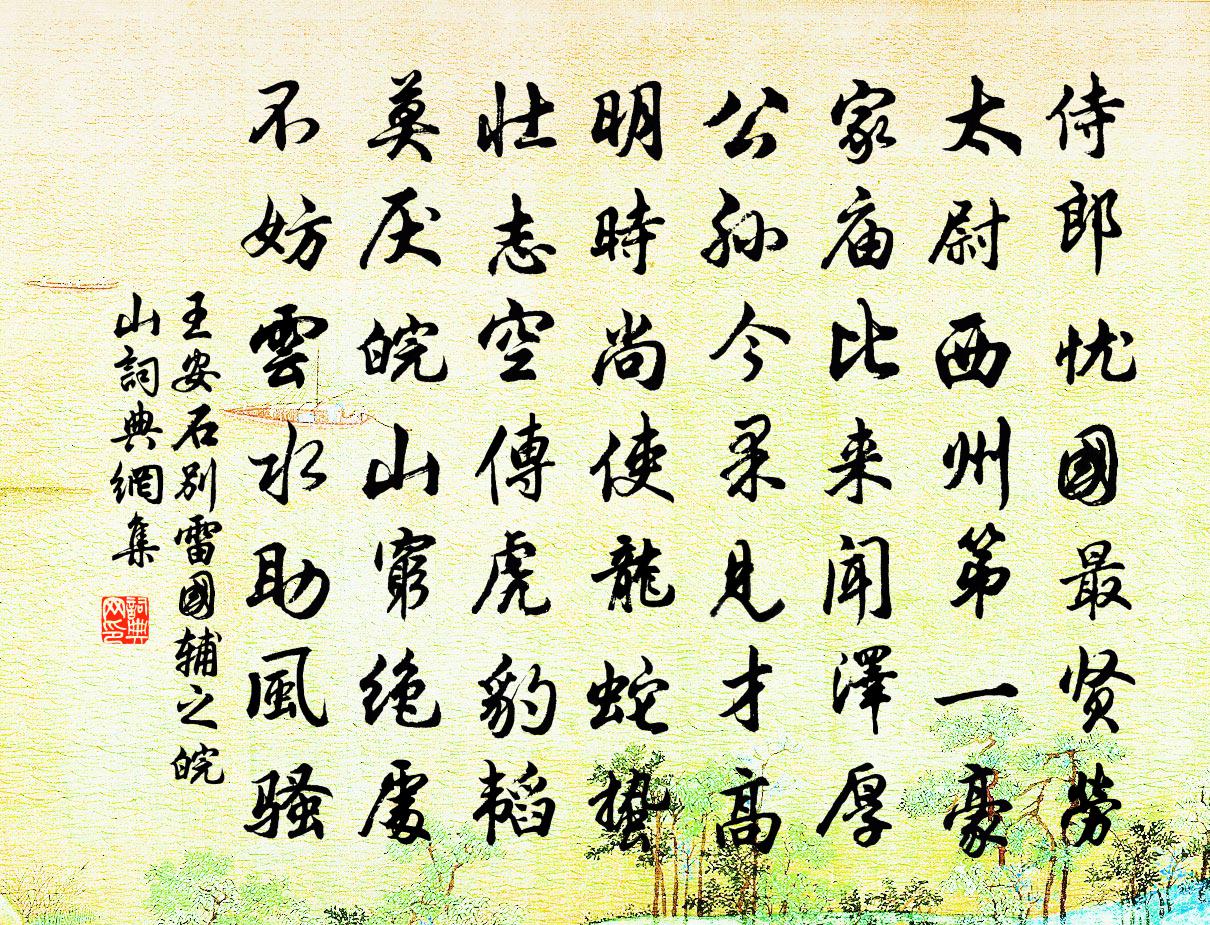 侍郎忧國最贤勞
太尉西州第一豪
家庙比来闻澤厚
公孙今果見才高
明時尚使龍蛇蛰
壮志空傳虎豹韬
莫厌皖山窮绝處
不妨雲水助風騷
王安石别雷國辅之皖
山詞典網集
詞典
网印